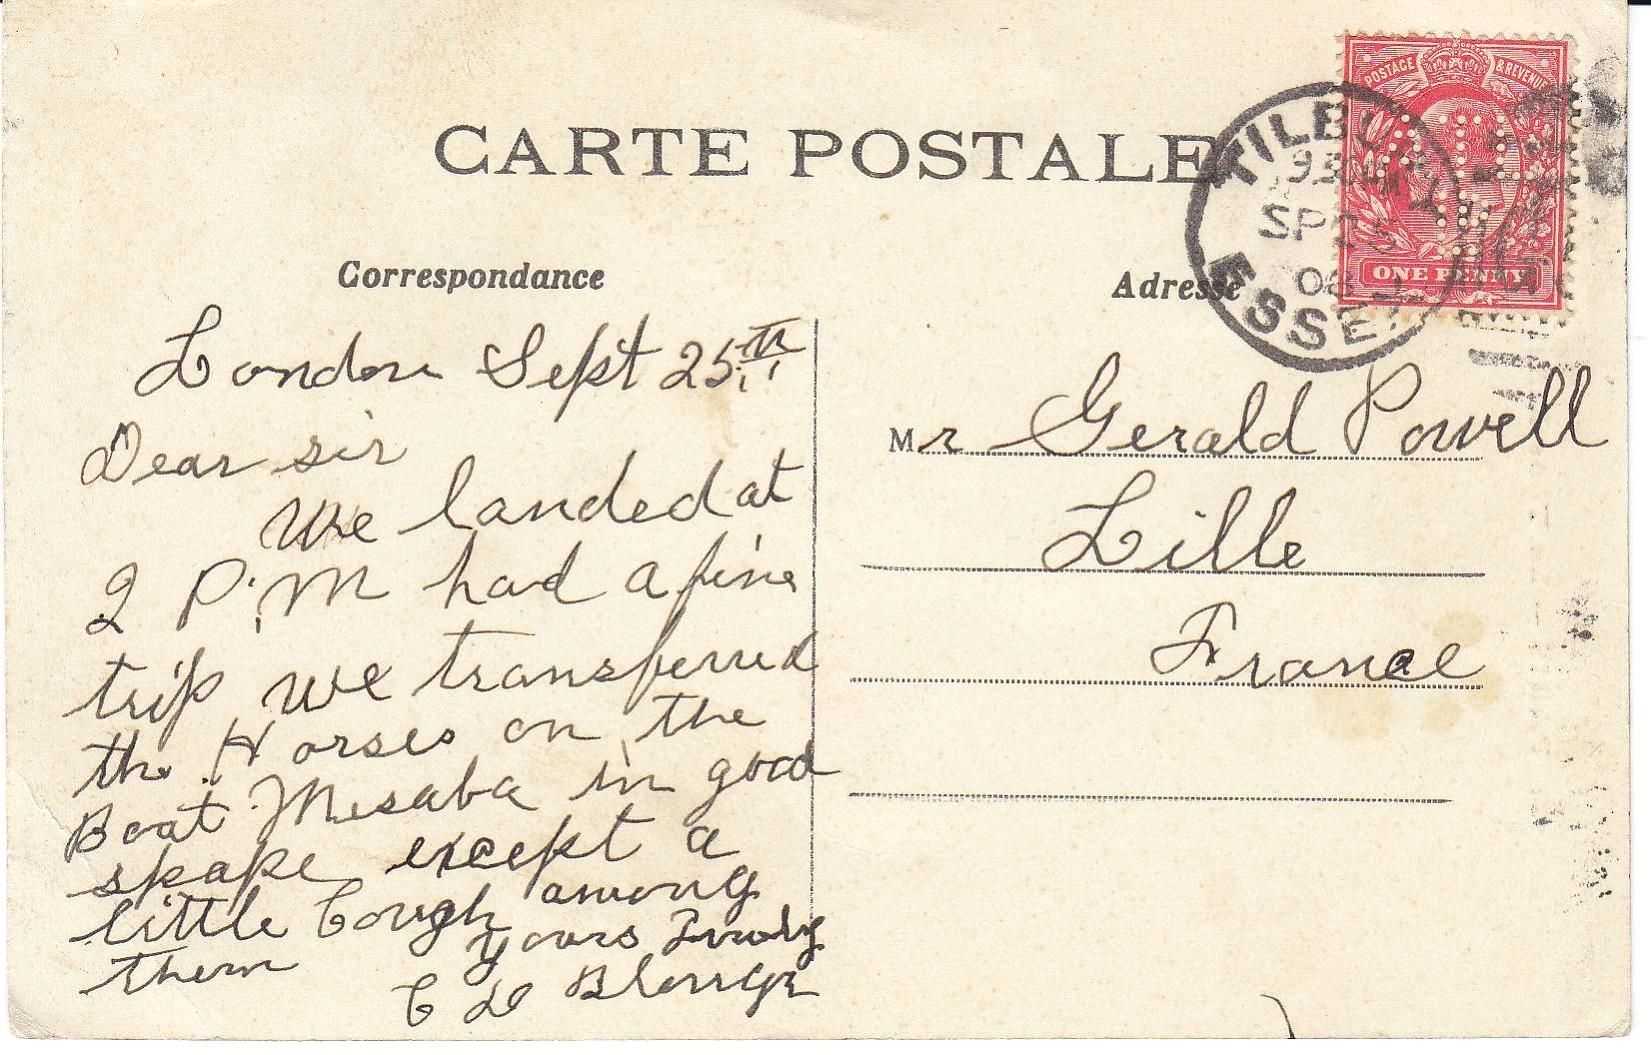 CARTE POSTALE
POSTAGE & REVENUE
ONE PENNY
TILBURY
SP 25
08
ESSEX
Correspondance
Adresse
London Sept 25th
Dear sir
We landed at
2 P.M had a fine
trip we transferred
the Horses on the
Boat Mesaba in good
shape except a
little Cough among
them Yours Truly
C
Mr Gerald Powell
Lille
France